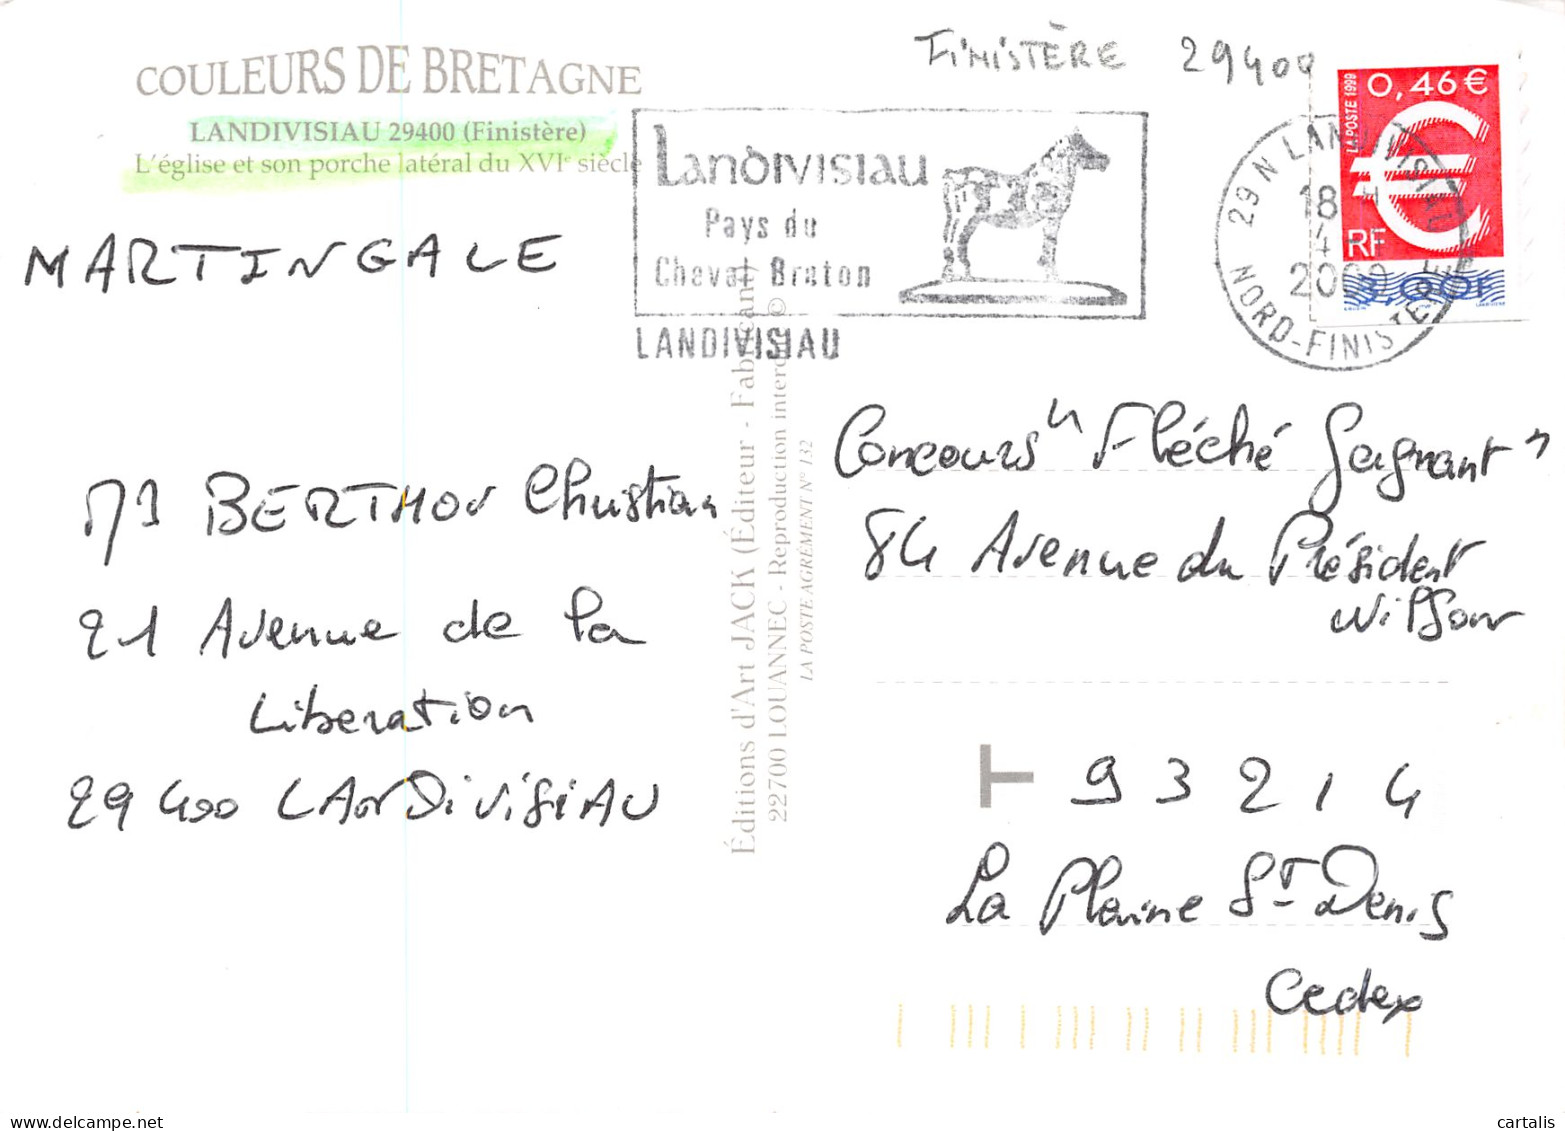 COULEURS DE BRETAGNE
LANDIVISIAU 29400 (Finistère)
L'église et son porche latéral du XVIe siècle
FINISTÈRE 29400
Landivisiau
Pays du
Cheval Breton
LANDIVISIAU
29 N LANDIVISIAU
18 H
4 -
2000
NORD-FINISTERE
LA POSTE 1999
0,46 €
€
RF
3,00F
MARTINGALE
BERTHOU Christian
21 Avenue de la
Liberation
29400 LANDIVISIAU
Éditions d'Art JACK (Éditeur - Fabricant)
22700 LOUANNEC - Reproduction interdite ©
LA POSTE AGRÉMENT N° 132
Concours "Fléché Gagnant"
84 Avenue du Président
Wilson
T 93214
La Plaine St Denis
Cedex